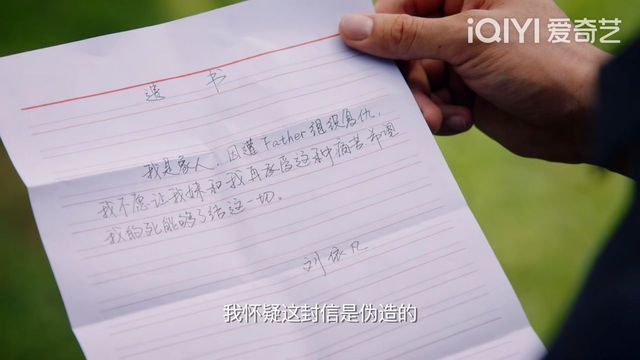 iQIYI 爱奇艺
遗 书
我是家人，因遭Father组织复仇，
我不愿让我妹和我再承受这种痛苦 希望
我的死能够了结这一切。
刘依凡
我怀疑这封信是伪造的